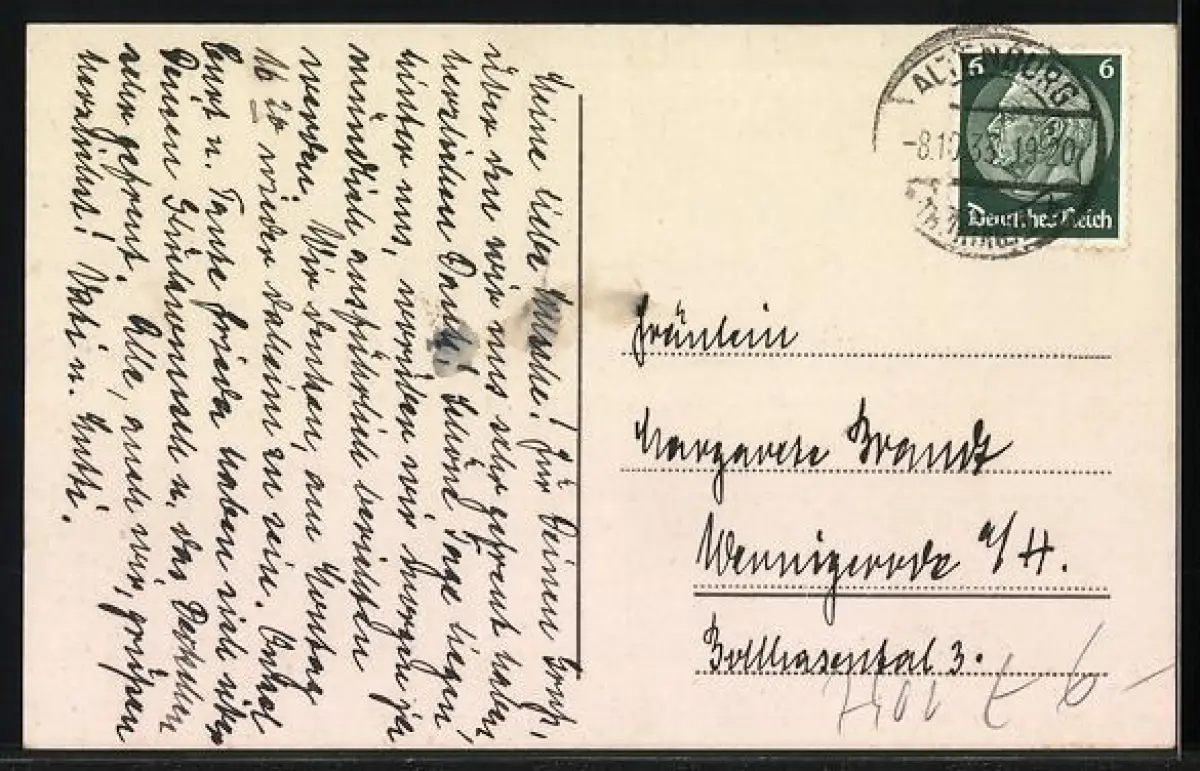 ALTENBURG
-8.10.33. 19-20
6 6
Deutsches Reich
Meine liebe! Für Deinen Brief,
über den wir uns sehr gefreut haben
herzlichen Dank! Schöne Tage liegen
hinter uns, worüber wir morgen ja
mündlich ausführlich berichten
werden. Wir denken, am Montag
16 20 wieder daheim zu sein. Onkel
Curt u. Tante Frieda haben sich über
Deinen Glückwunsch u. das
sehr gefreut. Alle, auch wir, grüßen
herzlichst! Vati u. Mutti.
Fräulein
Margarete Brandt
Wernigerode a/H.
Bollhasental 3.